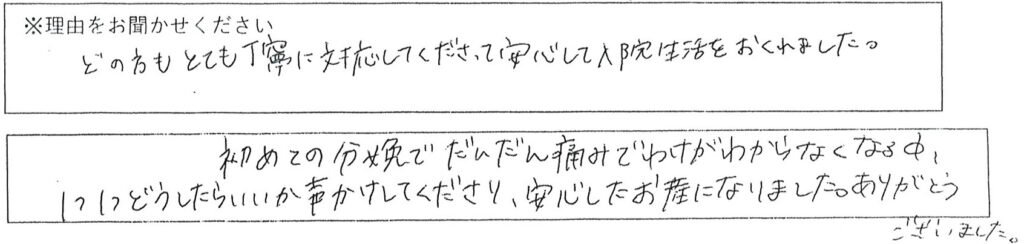 ※理由をお聞かせください
どの方もとても丁寧に対応してくださって安心して入院生活をおくれました。
初めての分娩でだんだん痛みでわけがわからなくなる中、
1つ1つどうしたらいいか声かけしてくださり、安心したお産になりました。ありがとう
ございました。